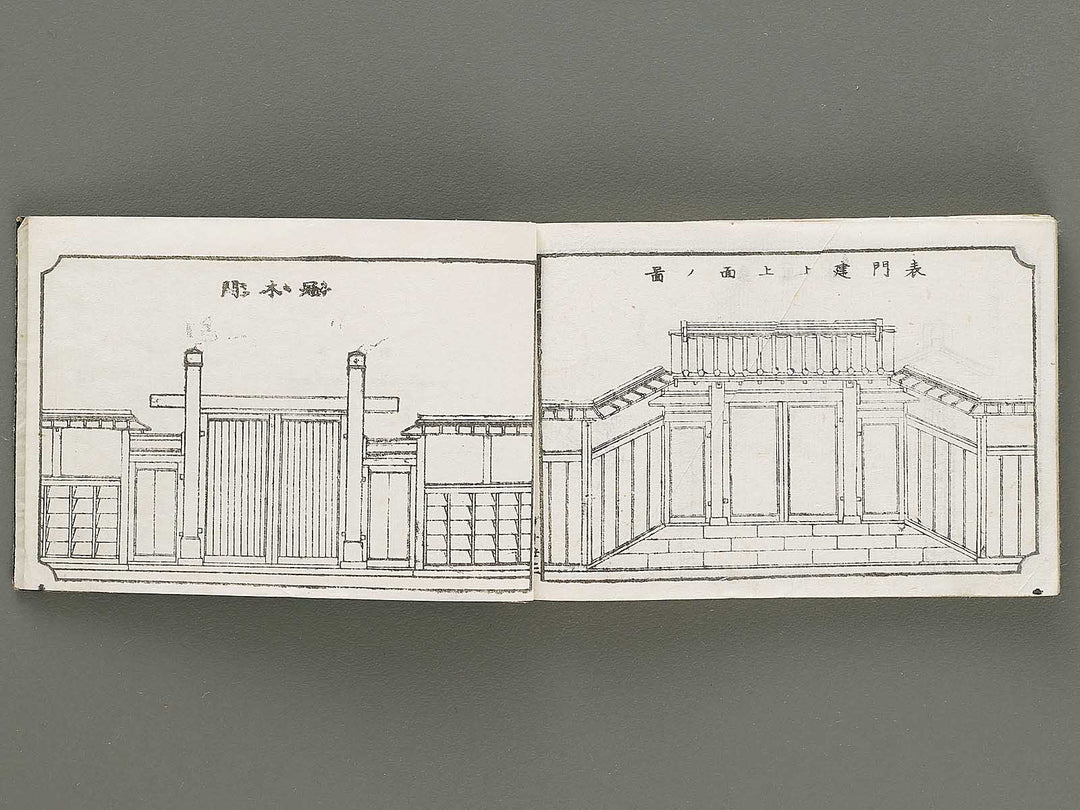 表門建ト上面ノ圖
冠木門